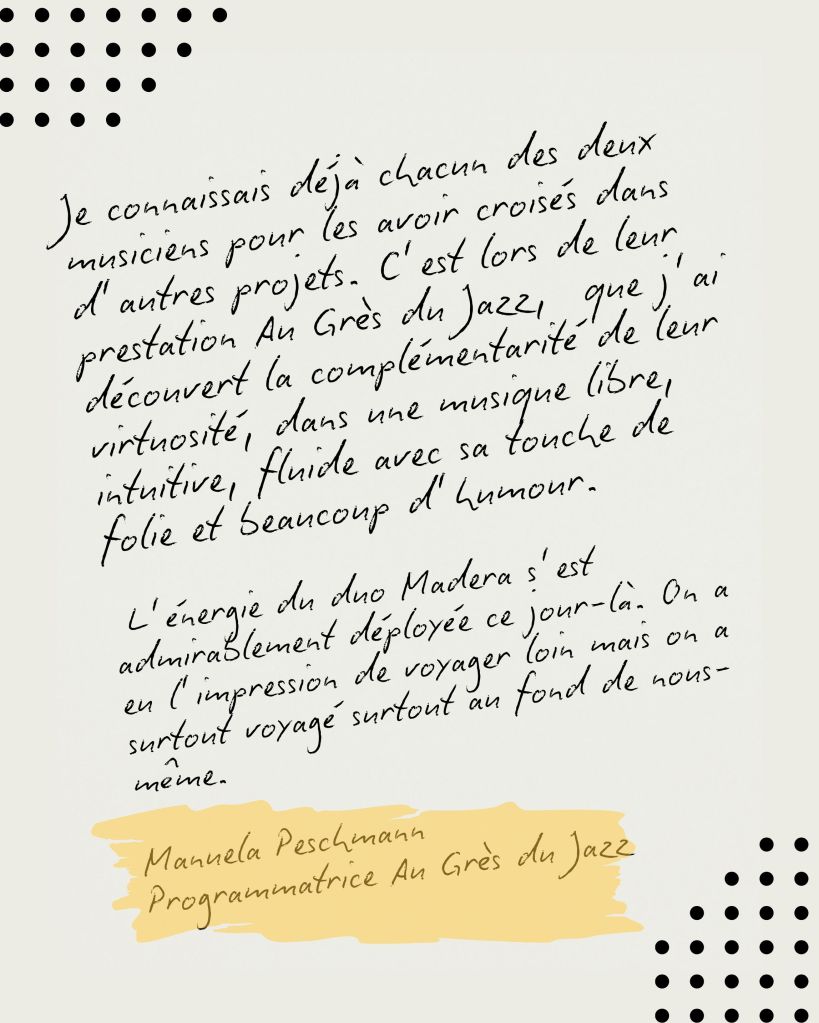 Je connaissais déjà chacun des deux
musiciens pour les avoir croisés dans
d'autres projets. C'est lors de leur
prestation Au Grès du Jazz, que j'ai
découvert la complémentarité de leur
virtuosité, dans une musique libre,
intuitive, fluide avec sa touche de
folie et beaucoup d'humour.
L'énergie du duo Madera s'est
admirablement déployée ce jour-là. On a
en l'impression de voyager loin mais on a
surtout voyagé surtout au fond de nous-
même.
Manuela Peschmann
Programmatrice Au Grès du Jazz